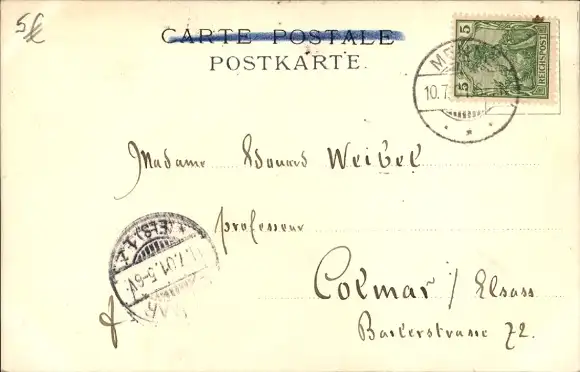 5
CARTE POSTALE
POSTKARTE.
5 5
REICHSPOST
10.7.
Madame Edouard Weibel
professeur
Colmar / Elsass
Baslerstrasse 72.
(ELS) 1
.7.01.5-6V.
MAR